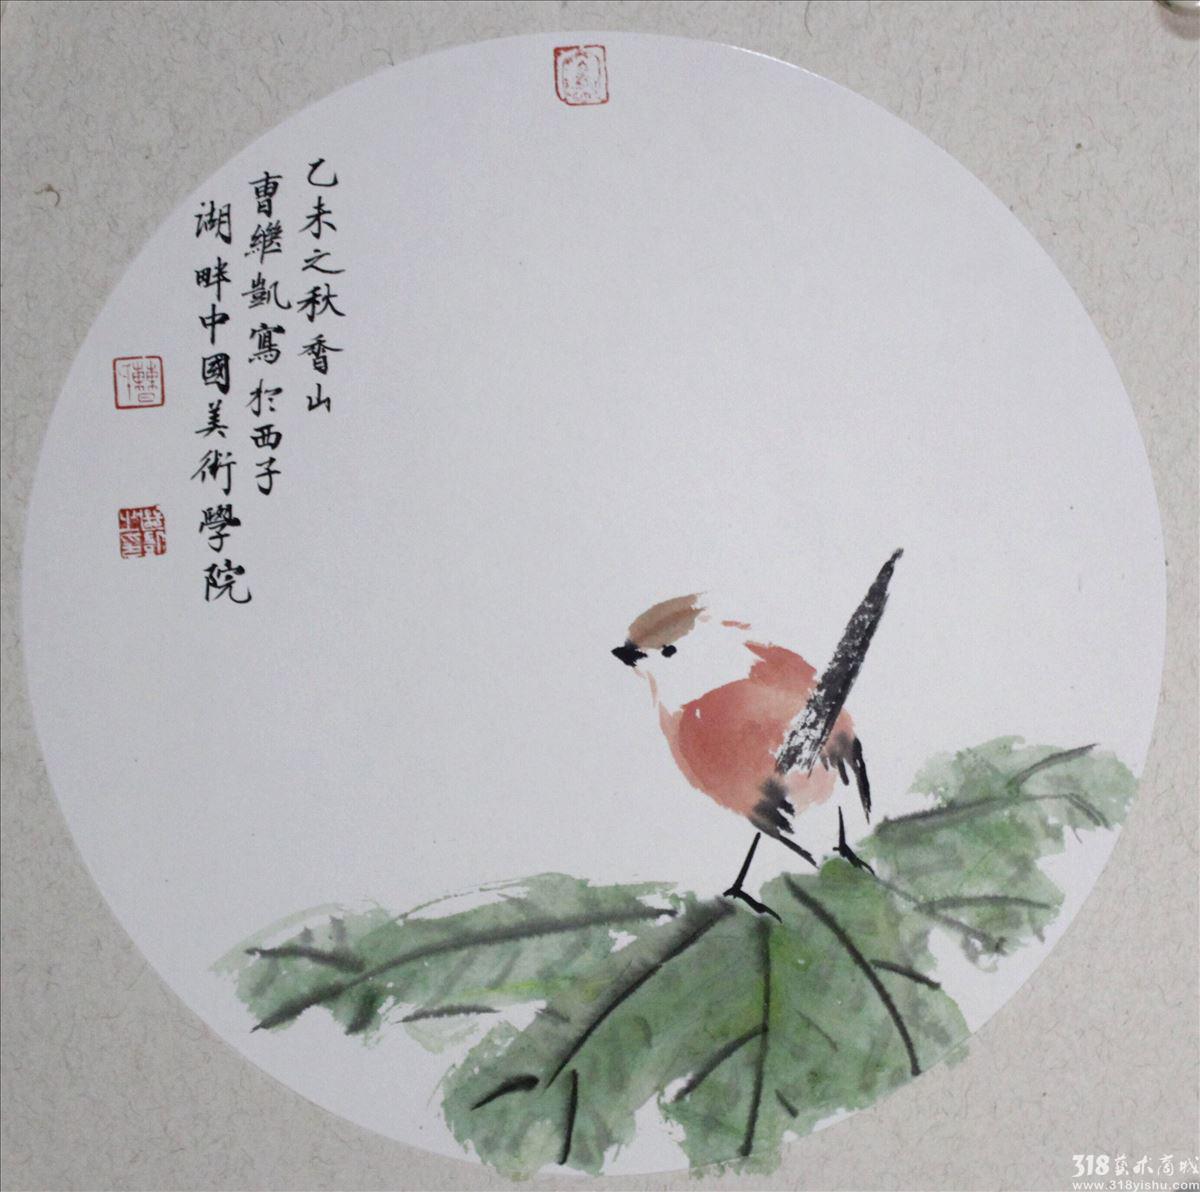 乙未之秋香山
曹繼凱寫於西子
湖畔中國美術學院
318藝术商城
www.318yishu.com